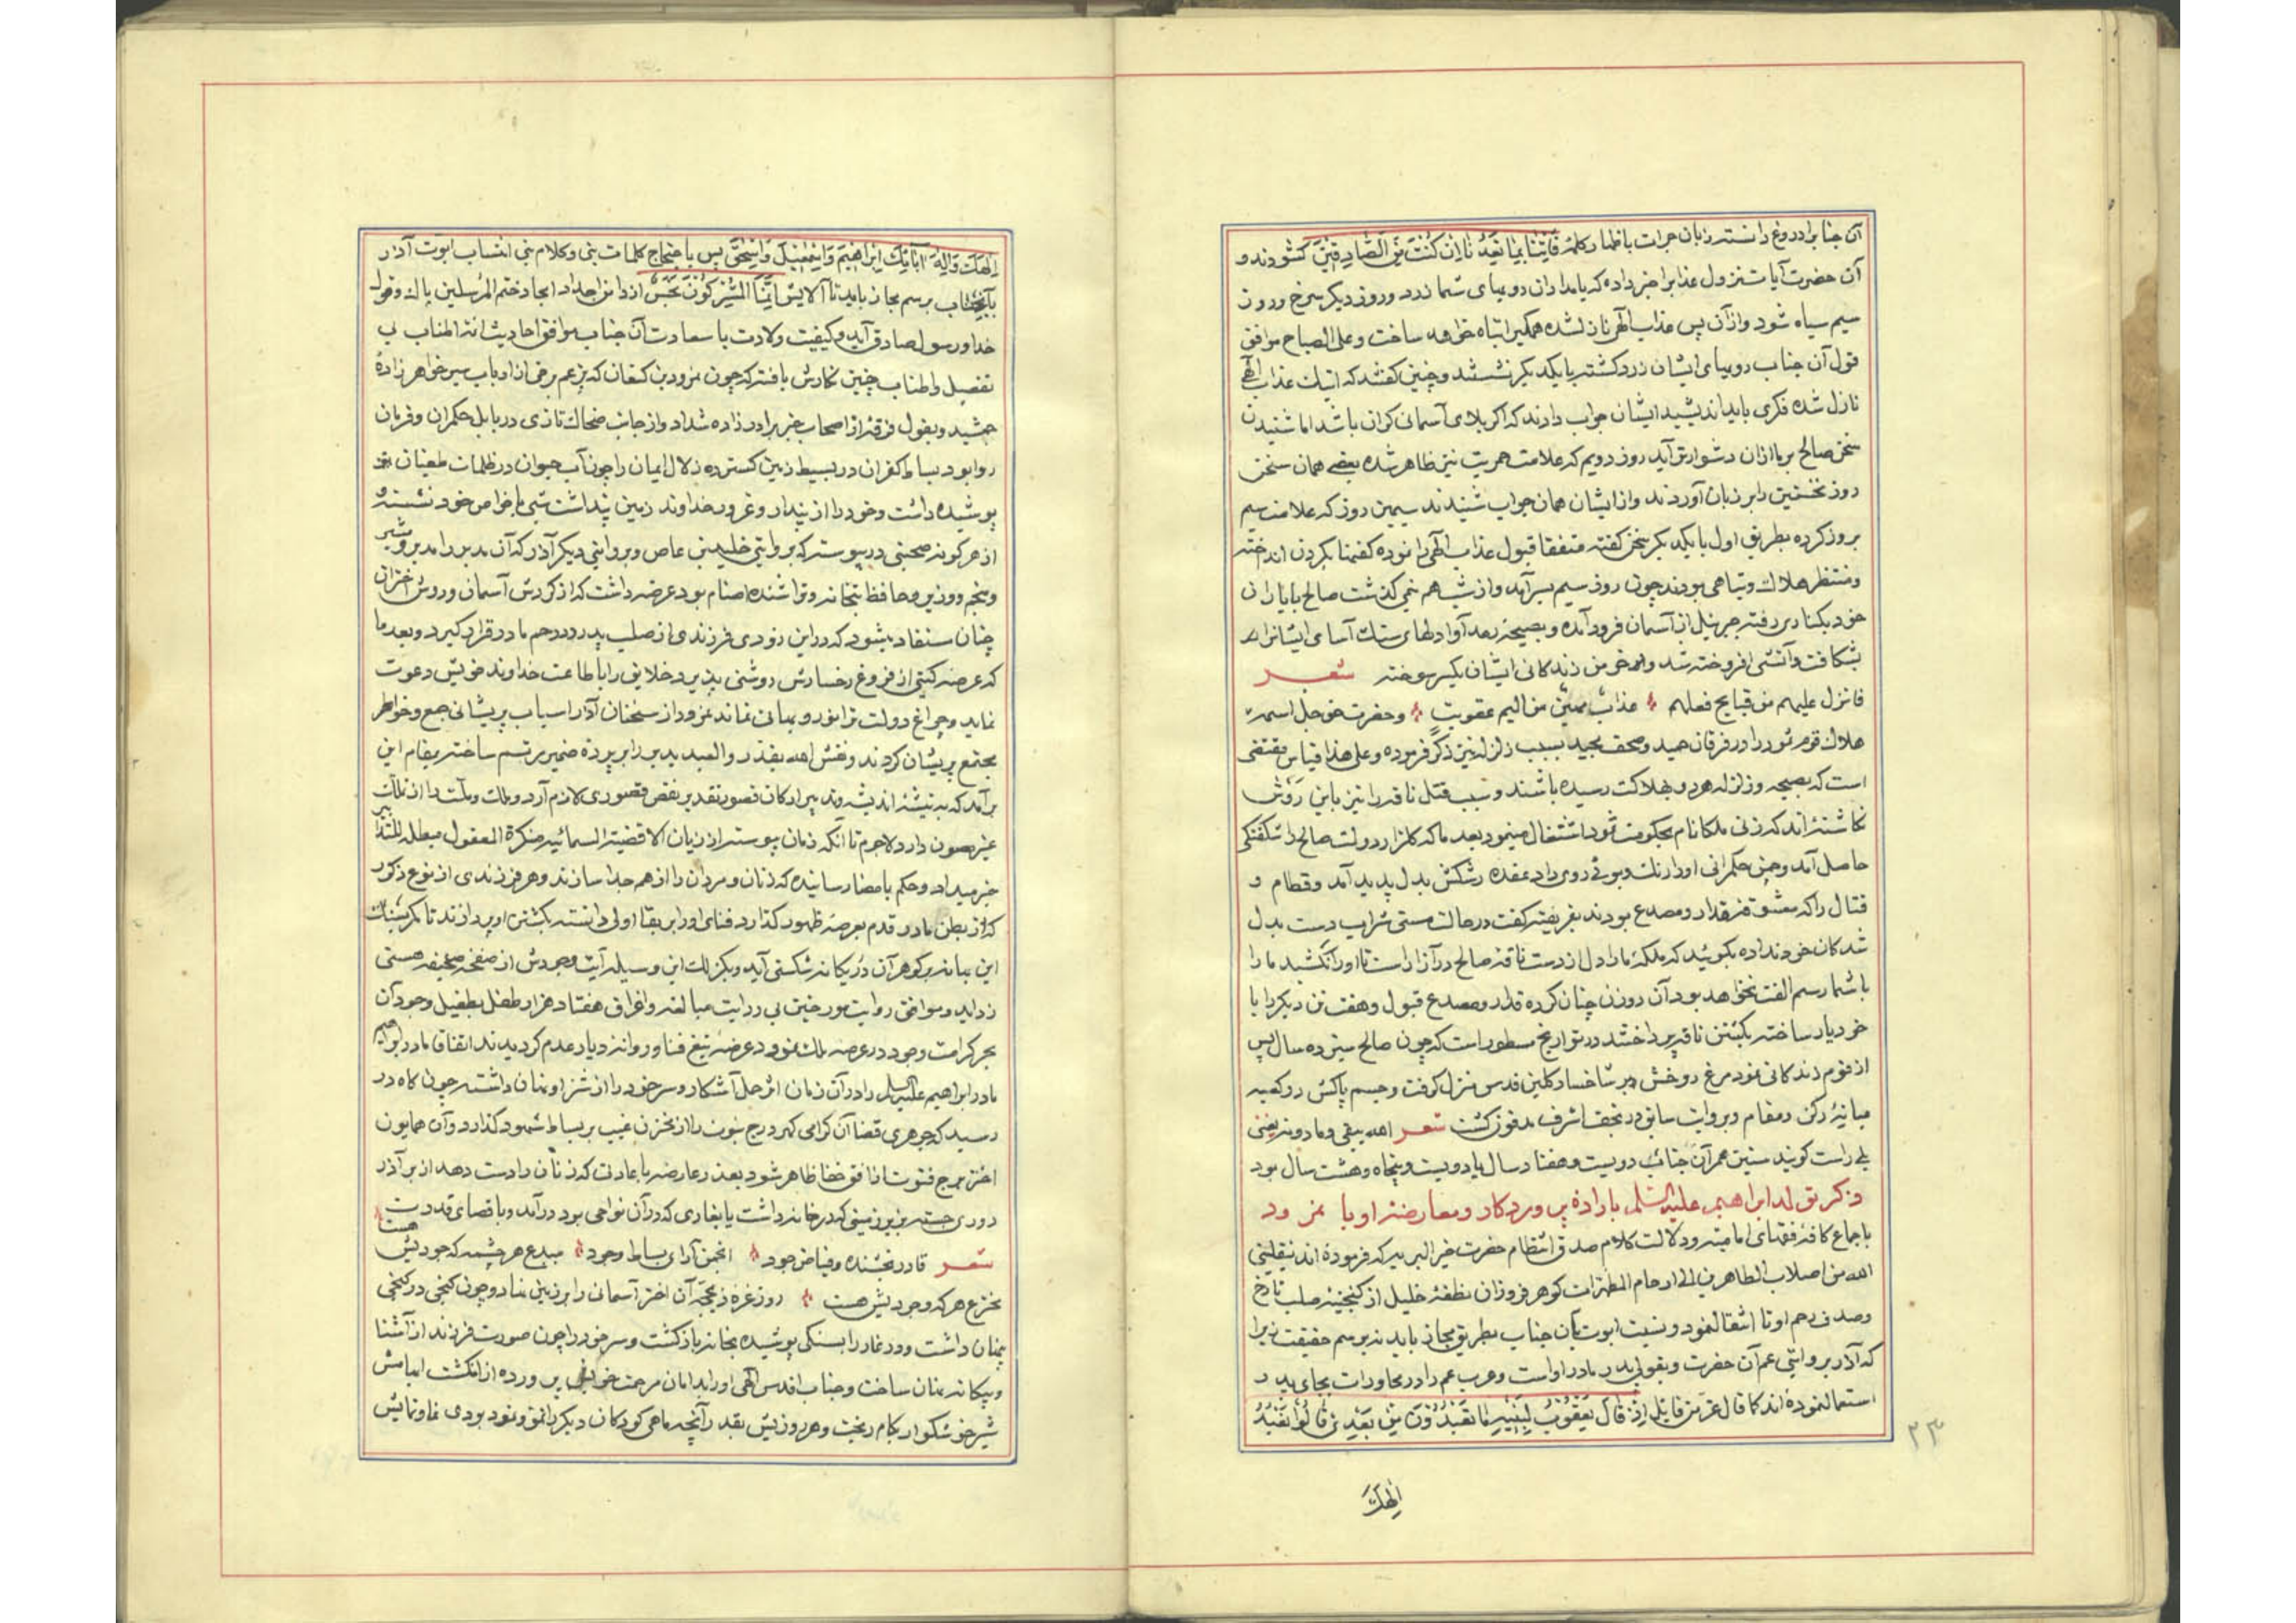 آن جناب را دروغ دانسته زبان جرات باظهار کلمهٔ فَأْتِنَا بِمَا تَعِدُنَا اِنْ کُنْتَ مِنَ الصَّادِقِینَ کشودند و
آن حضرت آیات نزول عذاب را خبر داده که بامدادان رویهای شما زرد و روز دیکر سرخ و روز
سیم سیاه شود و از آن پس عذاب الهی نازل شده همکی را تباه خواهد ساخت و علی الصباح موافق
قول آن جناب رویهای ایشان زرد کشته با یکدیکر نشستند و چنین کفتند که اینک عذاب الهی
نازل شده فکری باید اندیشید ایشان جواب دادند که اکر بلای آسمانی کران باشد اما شنیدن
سخن صالح بر ما ازان دشوارتر آید روز دویم که علامت حمریت نیز ظاهر شده بعضی همان سخن
روز نخستین را بر زبان آوردند و از ایشان همان جواب شنیدند سیمین روز که علامت سیم
بروز کرده بطریق اول با یکدیکر سخن کفته متفقا قبول عذاب الهی را نموده کفنها بکردن انداخته
و منتظر هلاک و تباهی بودند چون روز سیم بسر آمد و از شب هم نیمی کذشت صالح با یاران
خود بکناری رفته جبرئیل از آسمان فرود آمده و بصیحهٔ رعد آوا دلهای سنک آسای ایشانرا
بشکافت و آتشی افروخته شد و خرمن زندکانی ایشان یکسر سوخته شعر
فانزل علیهم من قبایح فعلهم عذاب مهین من الیم عقوبت و حضرت حق جل اسمه
هلاک قوم ثمود را در فرقان حمید و مصحف مجید بسبب زلزله نیز ذکر فرموده و علی هذا قیاس مقتضی
است که بصیحه و زلزله هر دو بهلاکت رسیده باشند و سبب قتل ناقه را نیز باین روش
نکاشته‌اند که زنی ملکا نام بحکومت ثمود اشتغال مینمود بعد ما که کلزار دولت صالح را شکفتکی
حاصل آمد و چمن حکمرانی او را رنک و بوئی روی داد عقده رشکش بدل پدید آمد و قطام و
قتال را که معشوقهٔ قدار و مصدع بودند بفریفته کفت در حالت مستی شراب دست بدل
شدکان خود نداده بکوئید که ملکهٔ ما را دل از دست ناقهٔ صالح در آزار است تا او را نکشید ما را
با شما رسم الفت نخواهد بود آن دو زن چنان کرده قدار و مصدع قبول و هفت تن دیکر را با
خود یار ساخته بکشتن ناقه پرداختند در تواریخ مسطور است که چون صالح سیزده سال پس
از قوم زندکانی نمود مرغ روحش بر شاخسار کلبن قدس منزل کرفت و جسم پاکش در کعبه
میانهٔ رکن و مقام و بروایت سابق در نجف اشرف مدفون کشت شعر الله یبقی و ما دونه یفنی
بلی راست کویند سنین عمر آن جناب دویست و هفتاد سال یا دویست و پنجاه و هشت سال بود
ذکر تولد ابراهیم علیه السلم باراده پروردکار و معارضهٔ او با نمرود
باجماع کافهٔ فقهای امامیه و دلالت کلام صدق انتظام حضرت خیر البریه که فرموده‌اند نقلنی
الله من اصلاب الطاهرین الی ارحام المطهرات کوهر فروزان نطفهٔ خلیل از کنجینهٔ صلب تارخ
و صدف رحم اوتا انتقال نمود و نسبت ابوت بآن جناب بطریق مجاز باید نه برسم حقیقت زیرا
که آذر بروایتی عم آن حضرت و بقولی پدر مادر او است و عرب عم را در محاورات بجای پدر
استعمال نموده‌اند کما قال عز من قایل اِذْ قالَ یَعْقُوبُ لِبَنِیهِ ما تَعْبُدُونَ مِنْ بَعْدِی قالُوا نَعْبُدُ
اِلٰهَکَ
۲۳
اِلٰهَکَ وَاِلٰهَ آبائِکَ اِبْراهِیمَ وَاِسْمٰعِیلَ وَاِسْحٰقَ پس باحتجاج کلمات نبی و کلام نبی انتساب ابوت آذر
بآنجناب برسم مجاز باید تا آلایش اِنَّمَا الْمُشْرِکُونَ نَجَسٌ از دامن اجداد امجاد ختم المرسلین پاک و قول
خدا و رسول صادق آید و کیفیت ولادت با سعادت آن جناب موافق احادیث ائمه اطیاب بی
تفصیل و اطناب چنین نکارش یافته که چون نمرود بن کنعان که بزعم برخی از ارباب سیر خواهر زادهٔ
جمشید و بقول فرقهٔ از اصحاب خبر برادر زاده شداد و از جانب ضحاک تازی در بابل حکمران و فرمان
روا بود بساط کفران در بسیط زمین کسترده زلال ایمان را چون آب حیوان در ظلمات طغیان
پوشیده داشت و خود را از پندار و غرور خداوند زمین پنداشت شبی با خواص خود نشسته و
از هر کونه صحبتی در پیوسته که بروایتی خلید بن عاص و بروایتی دیکر آذر که آن مدبر را مدبر و مشیر
و منجم و وزیر و حافظ بتخانه و تراشنده اصنام بود عرضه داشت که از کردش آسمان و روش اختران
چنان مستفاد میشود که در این زودی فرزندی از صلب پدر در رحم مادر قرار کیرد و بعد ما
که عرصه کیتی از فروغ رخسارش روشنی پذیرد خلایق را باطاعت خداوند خویش دعوت
نماید و چراغ دولت ترا نور و بهائی نماند نمرود از سخنان آذر اسباب پریشانی جمع و خواطر
مجتمع پریشان کردند و نقش الله یقدر و العبد یدبر را بر پرده ضمیر مرتسم ساخته بمقام این
برآمد که به تیشهٔ اندیشه و تدبیر ارکان قصور تقدیر نقص قصوری لازم آرد و ملک و ملت را از تملک
غیر مصون دارد لاجرم تا آنکه زمان پیوسته از زبان الاقضیة السمائیه منکرة العقول مبطله للتدابیر
خبر میداد و حکم بامضا رسانیده که زنان و مردان را از هم جدا سازند و هر فرزندی از نوع ذکور
که از بطن مادر قدم بعرصه ظهور کذارد فنای او را بر بقا اولی دانسته بکشتن او پردازند تا مکر بسنک
این بیانه بر کوهر آن در یکانه شکستی آید و بکزلک این وسیله آیت وجودش از صفحه صحیفه هستی
زداید و موافق روایت مورخین بی روایت مبالغه و اغراق هفتاد هزار طفل بطفیل وجود آن
بحر کرامت وجود در عرصه ملک نمرود عرضه تیغ فنا و روانه دیار عدم کردیدند اتفاقا مادر ابراهیم
مادر ابراهیم علیه السلم را در آن زمان اثر حمل آشکار و سر خود را از شر او نهان داشته چون کاه در
رسید که جوهری قضا آن کرامی کهر درج نبوت را از مخزن غیب بر بساط شهود کذارد و آن همایون
اختر برج فتوت از افق خفا ظاهر شود بعذر عارضه یا عادتی که زنان را دست دهد از بر آذر
دوری جسته بزیر زمینی که در خانه داشت یا بغاری که در آن نواحی بود درآمد و باقصای قدرت
شعر قادر بخشنده و فیاض جود انجمن آرای بساط وجود مبدع هر چشمه که جودیش هست
مخترع هر که وجودیش هست روز غره ذیحجه آن اختر آسمانی را بر زمین نهاد و چون کنجی در کنجی
پنهان داشت و در غار را بسنکی پوشیده بخانه بازکشت و سر خود را چون صورت فرزند از آشنا
و بیکانه نهان ساخت و جناب اقدس الهی او را بدامان مرحمت خویش پرورده از انکشت ابهامش
شیر خوشکوار بکام ریخت و هر روزیش بقدر آنچه ماهی کودکان دیکر را نمو و نمود بودی نما و نمایش